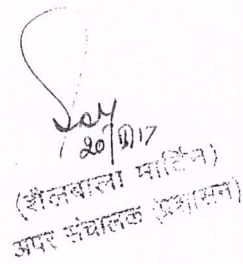 20/11/17
(शैलबाला मार्टिन)
अपर संचालक (प्रशासन)